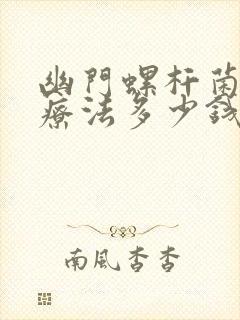 幽門螺杆菌
療法多少錢
南風杳杳